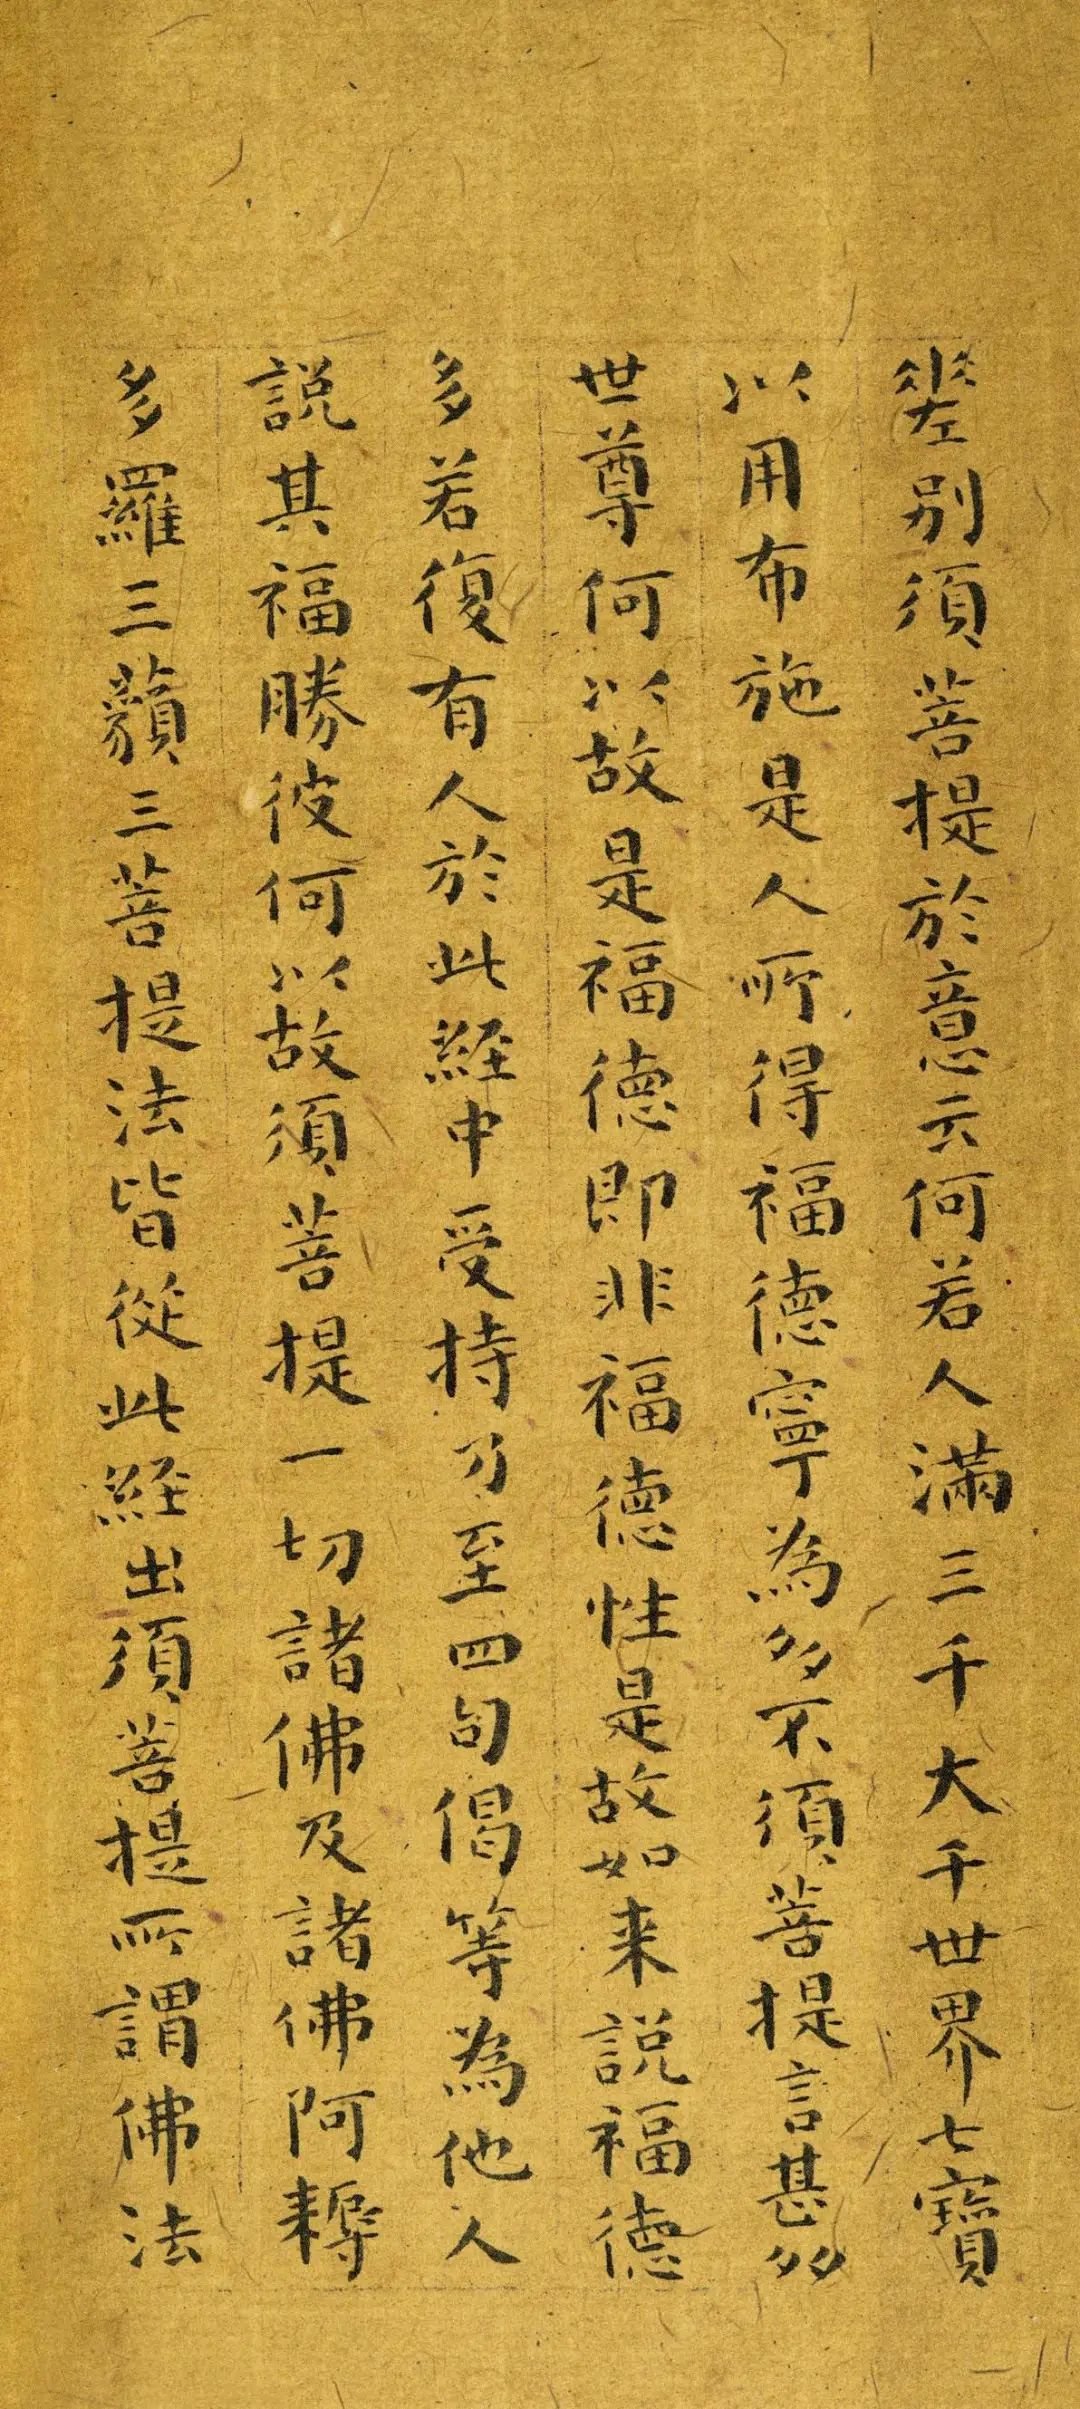 差別須菩提於意云何若人滿三千大千世界七寶
以用布施是人所得福德寧為多不須菩提言甚多
世尊何以故是福德即非福德性是故如来說福德
多若復有人於此經中受持乃至四句偈等為他人
說其福勝彼何以故須菩提一切諸佛及諸佛阿耨
多羅三藐三菩提法皆從此經出須菩提所謂佛法